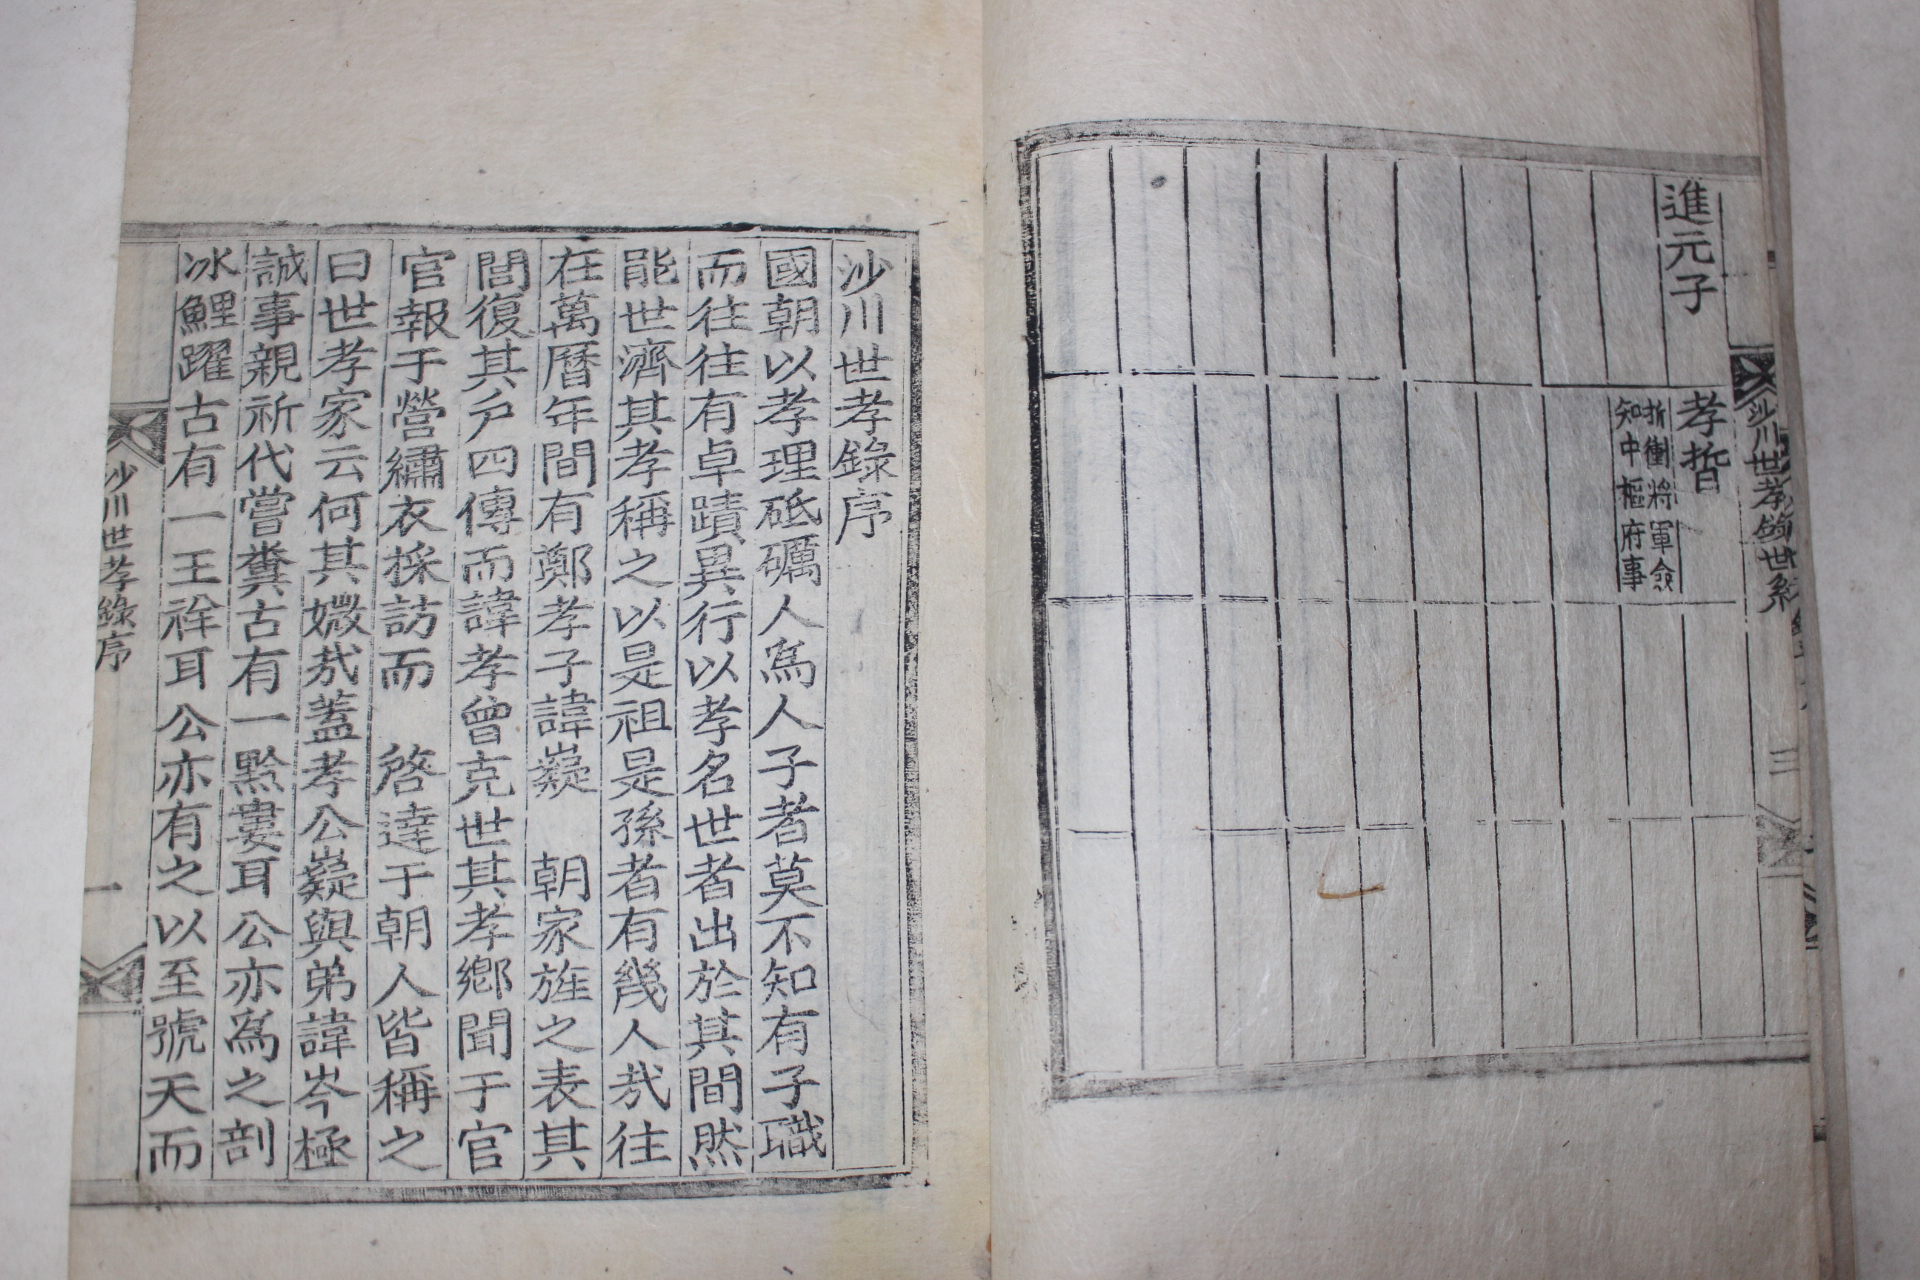 進元子
孝哲
折衝將軍僉
知中樞府事
沙川世孝錄世系
三
沙川世孝錄序
國朝以孝理砥礪人爲人子者莫不知有子職
而往往有卓蹟異行以孝名世者出於其間然
能世濟其孝稱之以是祖是孫者有幾人哉往
在萬曆年間有鄭孝子諱嶷 朝家旌之表其
閭復其戶四傳而諱孝曾克世其孝鄕聞于官
官報于營繡衣採訪而 啓達于朝人皆稱之
曰世孝家云何其媺哉蓋孝公嶷與弟諱岑極
誠事親祈代嘗糞古有一黔婁耳公亦爲之剖
冰鯉躍古有一王祥耳公亦有之以至號天而
沙川世孝錄序
一